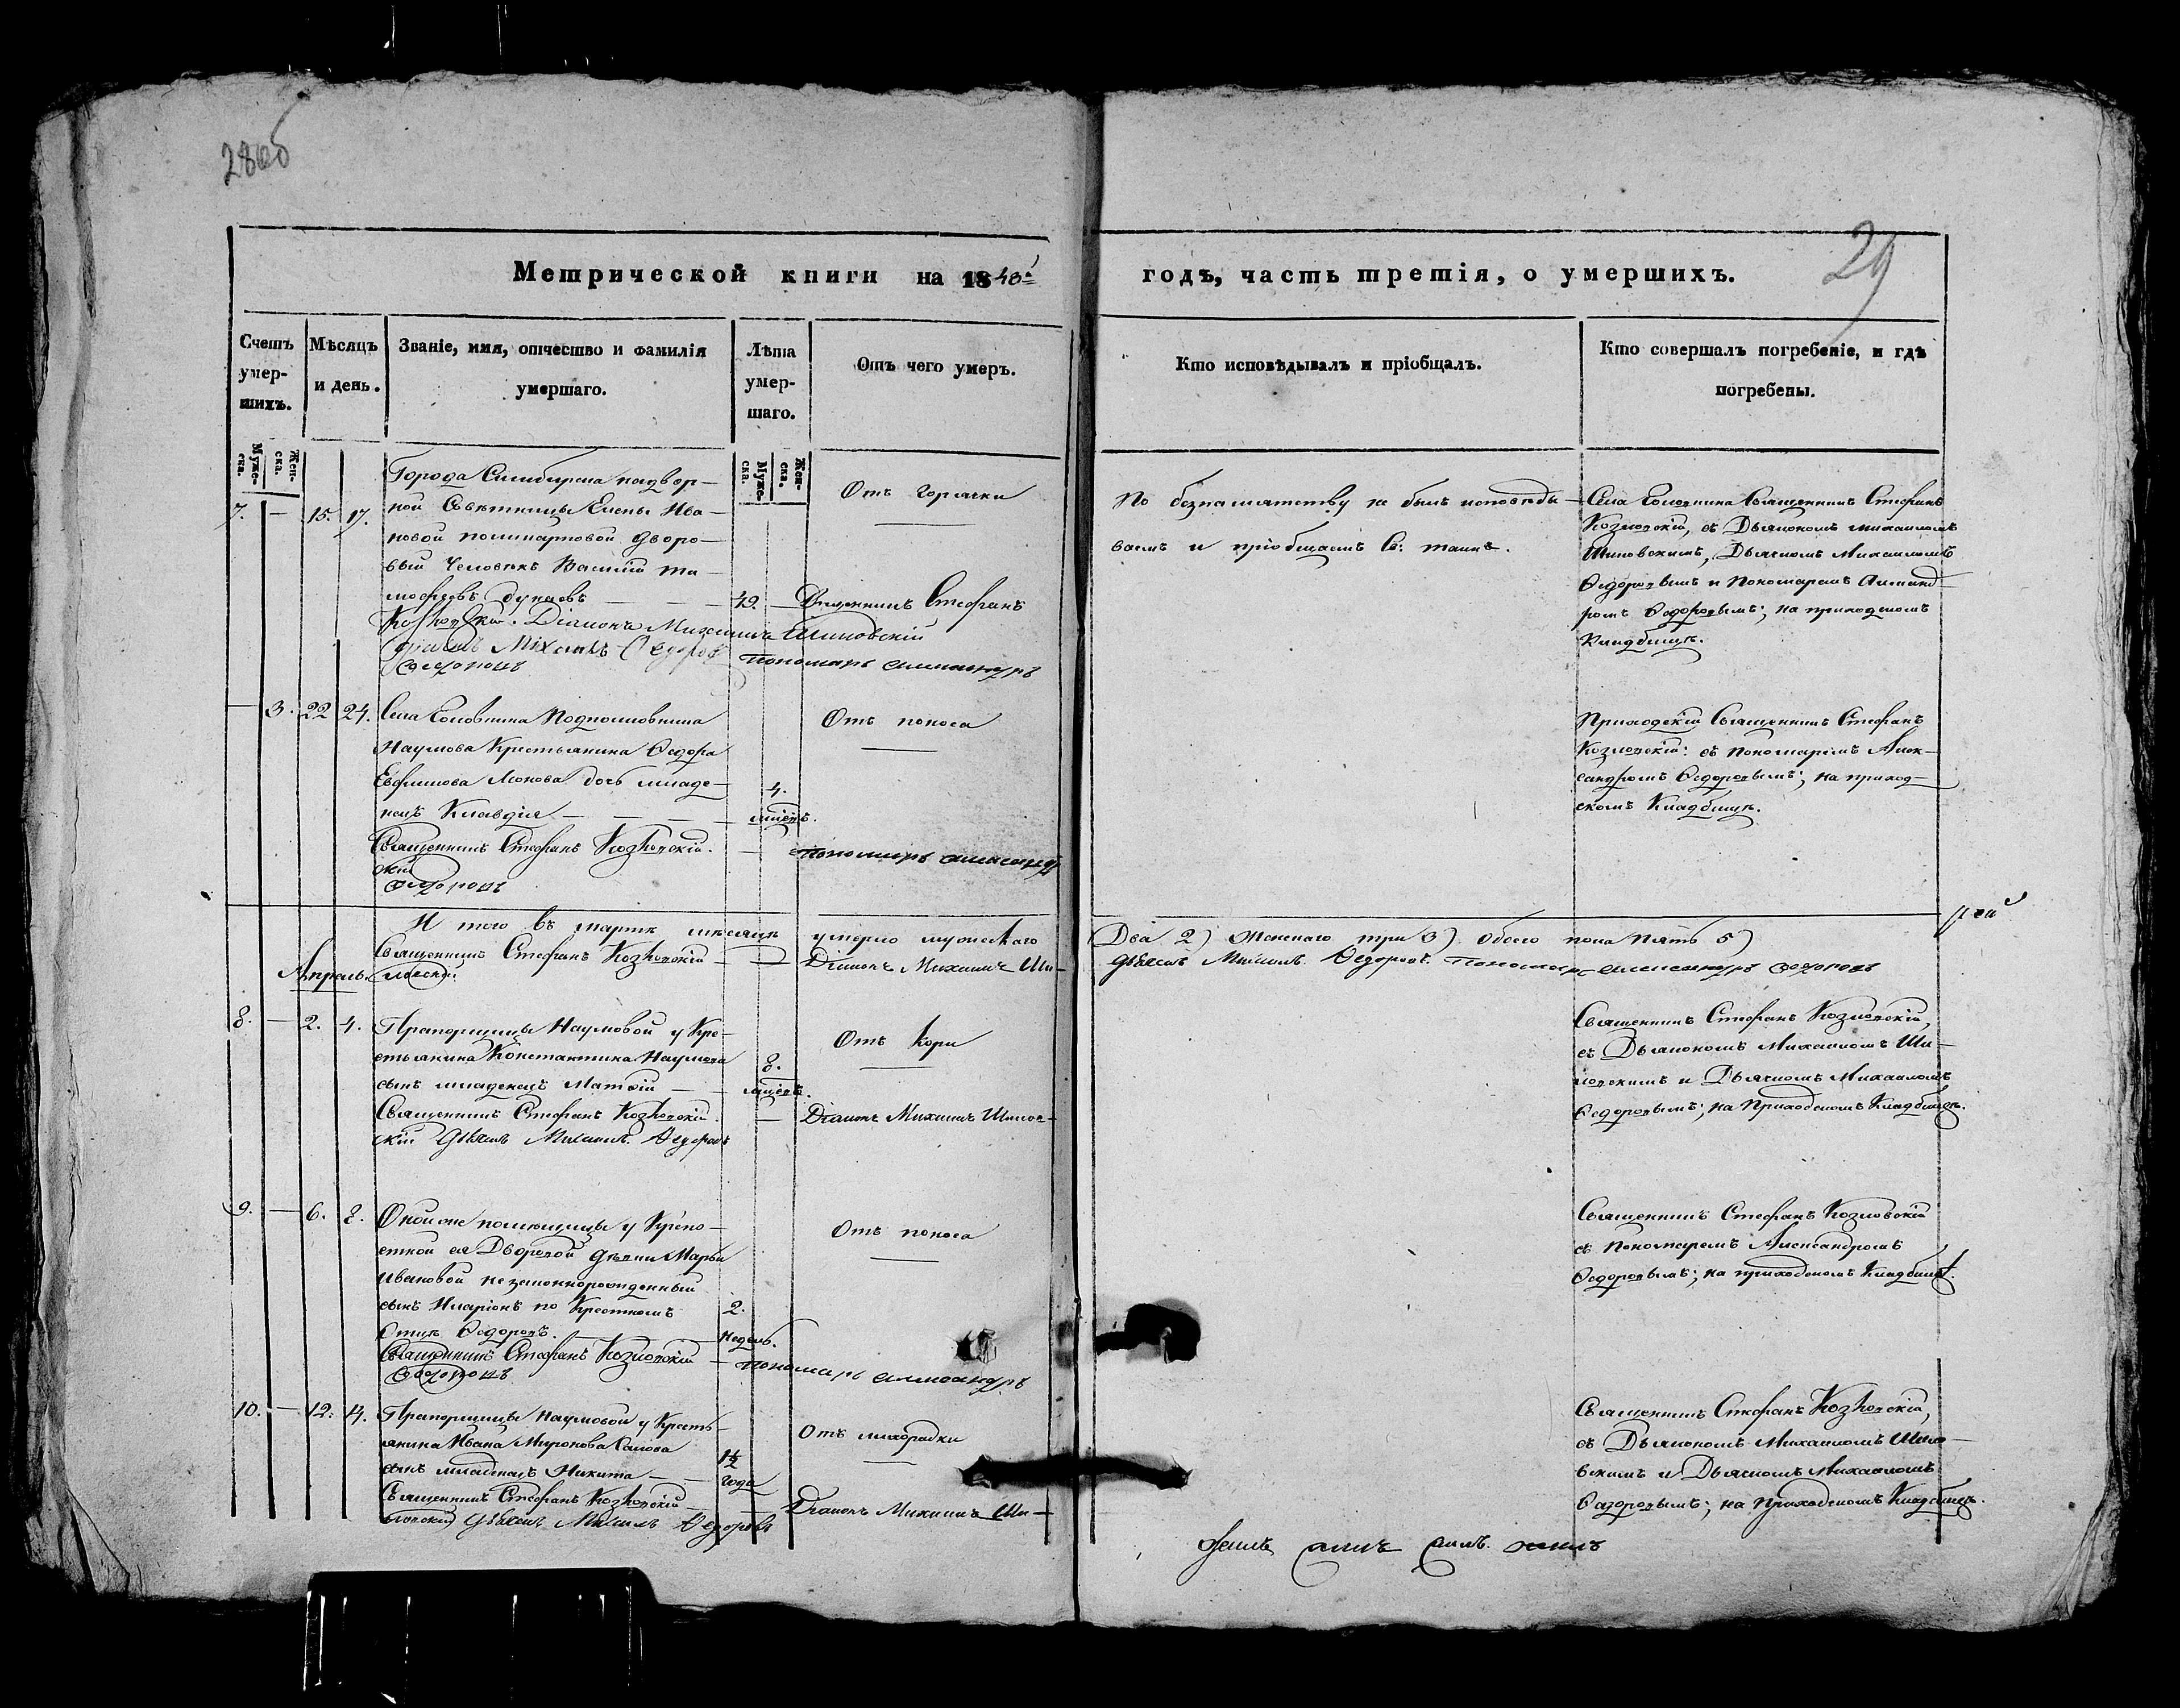 28об
29
Метрической книги на 1840й
годъ, часть третія, о умершихъ.
Счетъ умер-шихъ.
Мѣсяцъ и день.
Званіе, имя, отчество и фамилія умершаго.
Лѣта умер-шаго.
Отъ чего умеръ.
Кто исповѣдывалъ и пріобщалъ.
Кто совершалъ погребеніе, и гдѣ погребены.
Муже-ска.
Жен-ска.
Муже-ска.
Жен-ска.
7. — 15. 17.
Города Симбирска надвор-
ной Совѣтницы Елены Ива-
новой дворо-
вый Человѣкъ Василій Ти-
мофеевъ — — — 49.
Отъ горячки
По безпамятству не былъ исповѣды-
ваемъ и пріобщаемъ Св: таинъ.
Села Священникъ Стефанъ
Козловскій, съ Дьякономъ Михаиломъ
Шиловскимъ, Дьячкомъ Михаиломъ
Ѳедоровымъ и Пономаремъ Александ-
ромъ Ѳедоровымъ; на приходскомъ
Кладбищѣ.
Священникъ Стефанъ
Козловскій. Діаконъ Михаилъ Шиловскій
Дьячекъ Михаилъ Ѳедоровъ Пономарь Александръ
Ѳедоровъ
— 3. 22 24.
Села
Наумова Крестьянина Ѳедора
Евфимова дочь младе-
нецъ Клавдія — — — —
4. мѣсец.
Отъ поноса
Приходскій Священникъ Стефанъ
Козловскій: съ пономаремъ Алек-
сандромъ Ѳедоровымъ; на приход-
скомъ Кладбищѣ.
Священникъ Стефанъ Козловскій. — Пономарь Александръ
Ѳедоровъ
И того въ мартѣ мѣсяцѣ умерло мужескаго Два 2) Женскаго три 3) обоего пола Пять 5)
Священникъ Стефанъ Козловскій — Діаконъ Михаилъ Ши- Дьячекъ Михаилъ Ѳедоровъ. Пономарь Александръ Ѳедоровъ
Апрель. ловскій.
8. — 2. 4.
Прапорщицы Наумовой у Кре-
стьянина Константина Наумова
сынъ младенецъ Матѳій — —
8. мѣсец.
Отъ Кори
Священникъ Стефанъ Козловскій,
съ Дьякономъ Михаиломъ Ши-
ловскимъ и Дьячкомъ Михаиломъ
Ѳедоровымъ; на Приходскомъ Кладбищѣ.
Священникъ Стефанъ Козловскій. — Діаконъ Михаилъ Шилов-
скій Дьячекъ Михаилъ Ѳедоровъ
9. — 6. 8.
Оной же помѣщицы у Крепо-
стной ея Дворовой дѣвки Марьи
Ивановой незаконнорожденный
сынъ Иларіонъ по Крестномъ
Отцѣ Ѳедоровъ. —
2. недель.
Отъ поноса
Священникъ Стефанъ Козловскій
съ Пономаремъ Александромъ
Ѳедоровымъ; на приходскомъ Кладбищѣ.
Священникъ Стефанъ Козловскій — Пономарь Александръ
Ѳедоровъ
10. — 12. 14.
Прапорщицы Наумовой у Кресть-
янина Ивана Миронова
сынъ младенецъ Никита — —
1½ года
Отъ лихорадки
Священникъ Стефанъ Козловскій,
съ Дьякономъ Михаиломъ Шило-
вскимъ и Дьячкомъ Михаиломъ
Ѳедоровымъ; на Приходскомъ Кладбищѣ.
Священникъ Стефанъ Козловскій — Діаконъ Михаилъ Ши-
ловскій Дьячекъ Михаилъ Ѳедоровъ